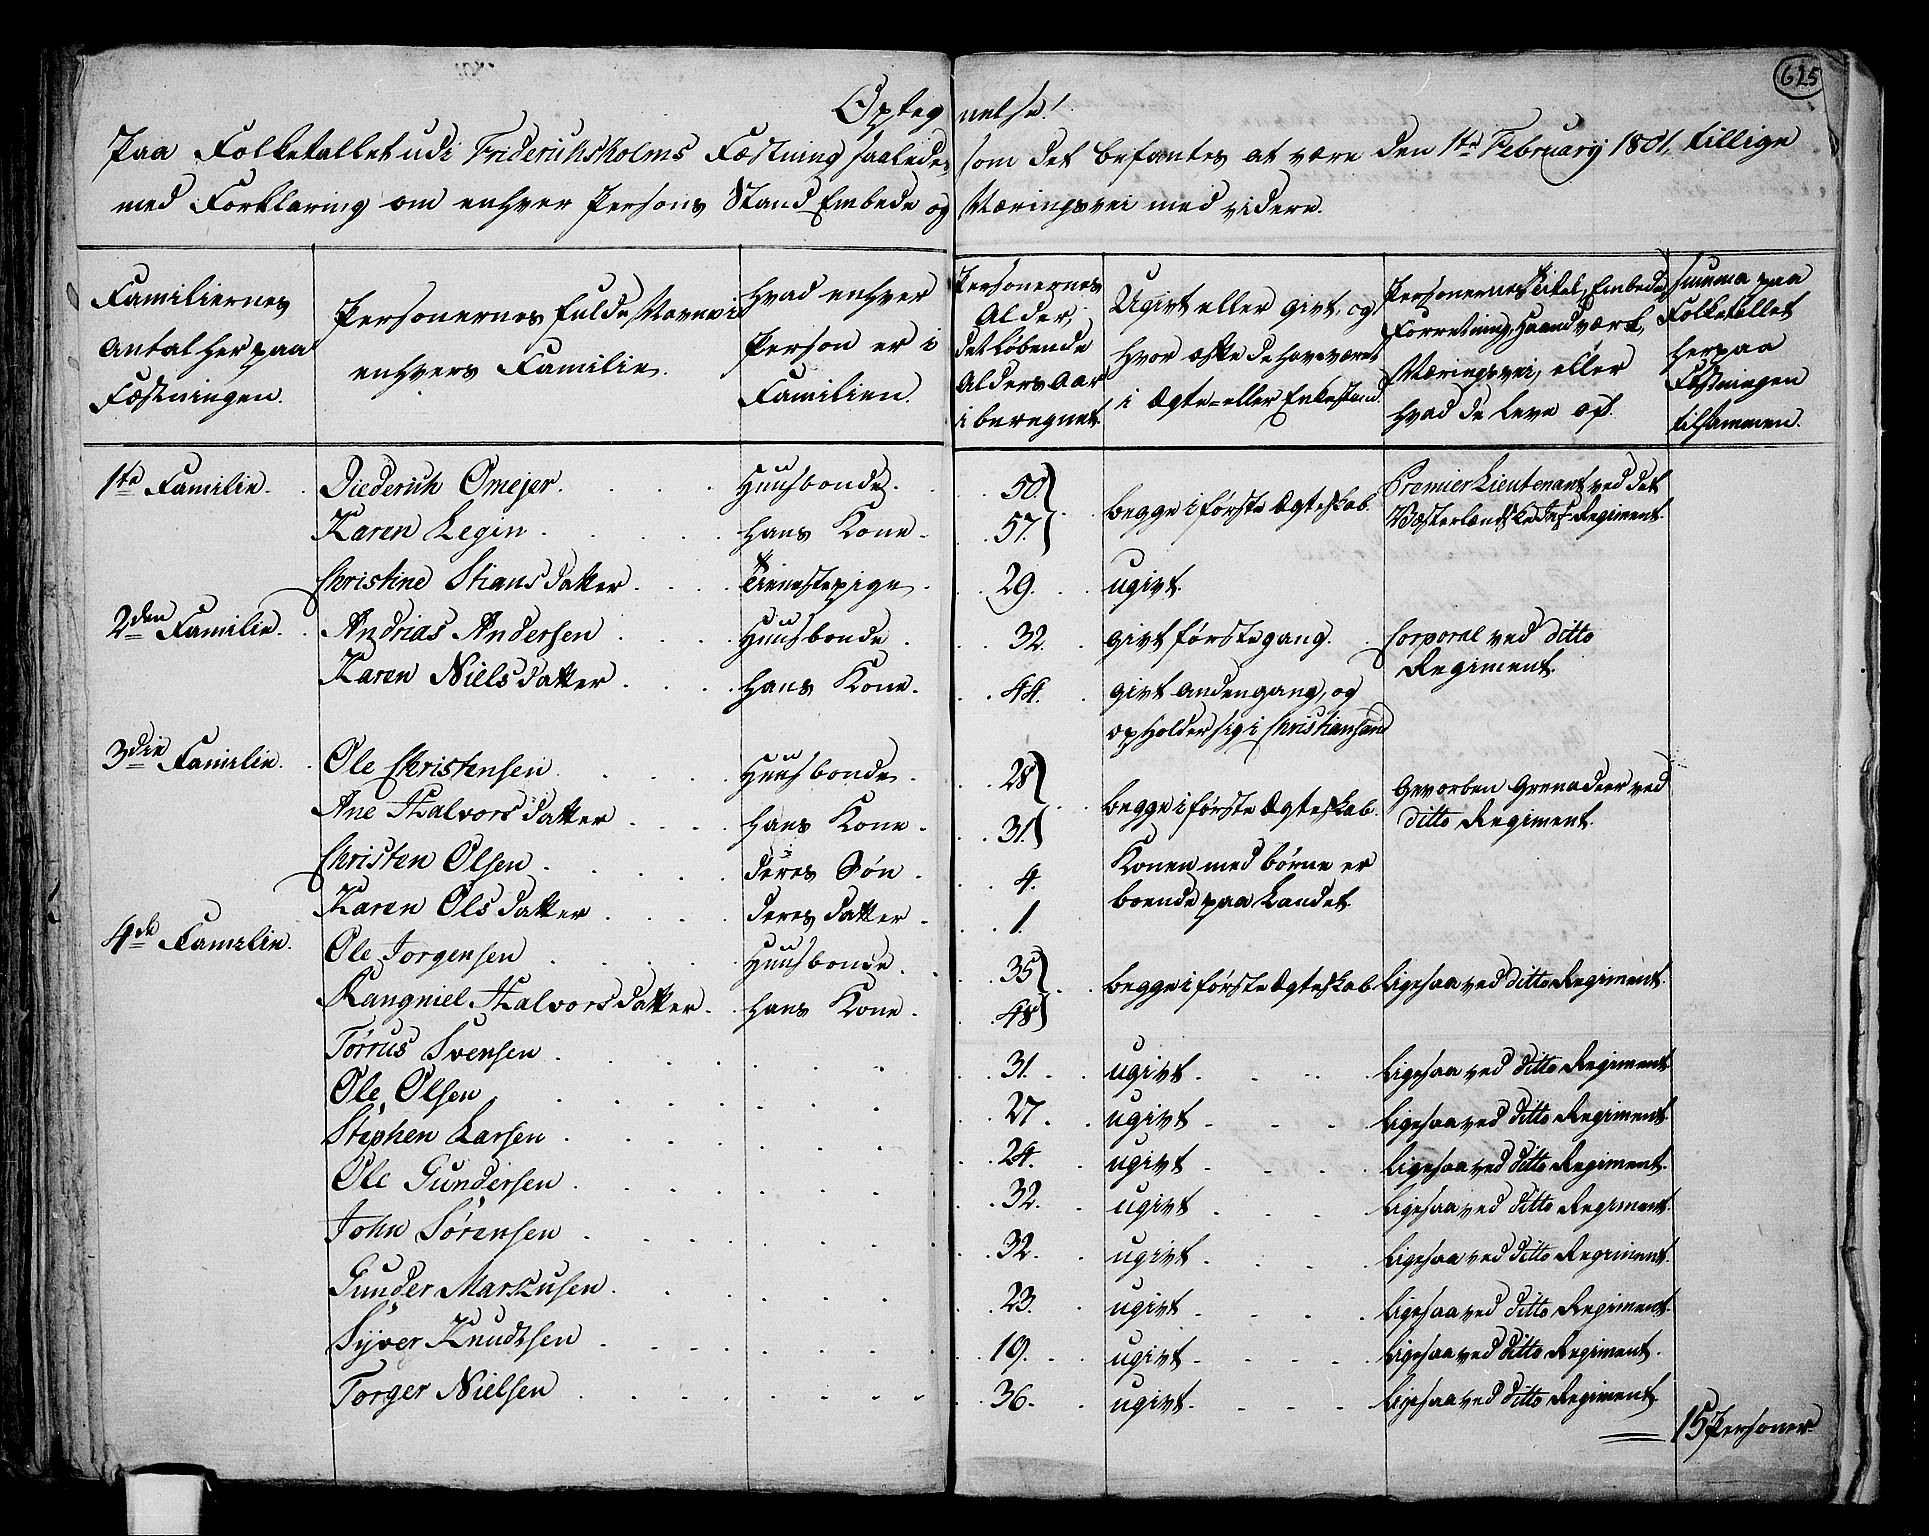 625
Opteg nelse!
Paa Folketallet udi Friderichsholms Fæstning saalede, som det befantes at være den 1te February 1801, tillige
med Forklaring om enhver Persons Stand Embede og Næringsvei med videre.
Familiernes Antal her paa Fæstningen.
Personernes fulde Navne i enhvers Familie.
Hvad enhver Person er i Familien.
Personernes Alder, det løbende Alders Aar iberegnet.
Ugivt eller givt, og hvor ofte de have været i Ægte- eller Enkestand.
Personernes Titel, Embede, Forretning, Haandværk, Næringsvei, eller hvad de leve af.
Summa paa Folketallet herpaa Fæstningen tilsammen.
1te Familie. Diederich Omejer. Huusbonde. 50 begge i første Ægteskab. Premier Lieutenant ved det
Karen Legin. hans Kone. 57. Væsterlendske Inf. Regiment.
Christine Stiansdatter. Tienestepige. 29. ugivt.
2den Familie. Andrias Andersen Huusbonde. 32. givt første gang. Corporal ved ditto
Karen Nielsdatter. hans Kone. 44. givt anden gang, og Regiment.
opholder sig i Christiansand
3die Familie. Ole Christensen Huusbonde. 28 begge i første Ægteskab. Gevorben Grenadeer ved
Ane Halvorsdatter hans Kone. 31. ditto Regiment.
Christen Olsen. deres Søn. 4. Konen med børne er
Karen Olsdatter deres datter. 1. boende paa Landet.
4de Familie. Ole Jorgensen Huusbonde. 35 begge i første Ægteskab ligesaa ved ditto Regiment.
Rangniel Halvorsdatter. hans Kone. 48
Torrus Svensen 31. ugivt. ligesaa ved ditto Regiment
Ole Olsen 27. ugivt ligesaa ved ditto Regiment.
Stephen Larsen 24. ugivt ligesaa ved ditto Regiment.
Ole Gundersen 32. ugivt ligesaa ved ditto Regiment.
John Sørensen 32. ugivt ligesaa ved ditto Regiment.
Gunder Markusen 23. ugivt ligesaa ved ditto Regiment.
Syver Knudtsen 19. ugivt. ligesaa ved ditto Regiment.
Torger Nielsen 36. ugivt. ligesaa ved ditto Regiment.
15 Personer.